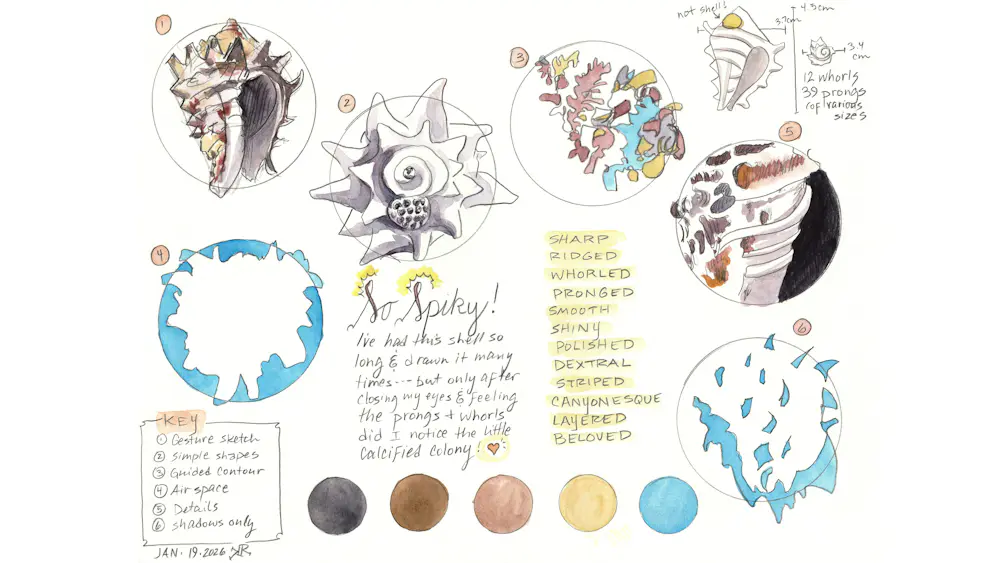 1
2
3
not shell!
4.3cm
3.7cm
3.4
cm
12 whorls
39 prongs
of various
sizes
5
4
So Spiky!
I've had this shell so
long & drawn it many
times--- but only after
closing my eyes & feeling
the prongs + whorls
did I notice the little
calcified colony!
SHARP
RIDGED
WHORLED
PRONGED
SMOOTH
SHINY
POLISHED
DEXTRAL
STRIPED
CANYONESQUE
LAYERED
BELOVED
6
KEY
1 Gesture sketch
2 Simple shapes
3 Guided contour
4 Air space
5 Details
6 shadows only
JAN. 19. 2026